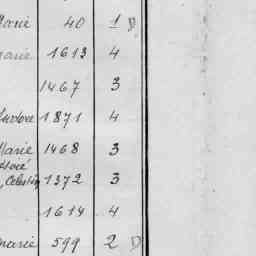 Marie 40 1 D
Marie 1613 4
1467 3
1871 4
Marie 1468 3
Celestin 1372 3
1614 4
Marie 599 2 D